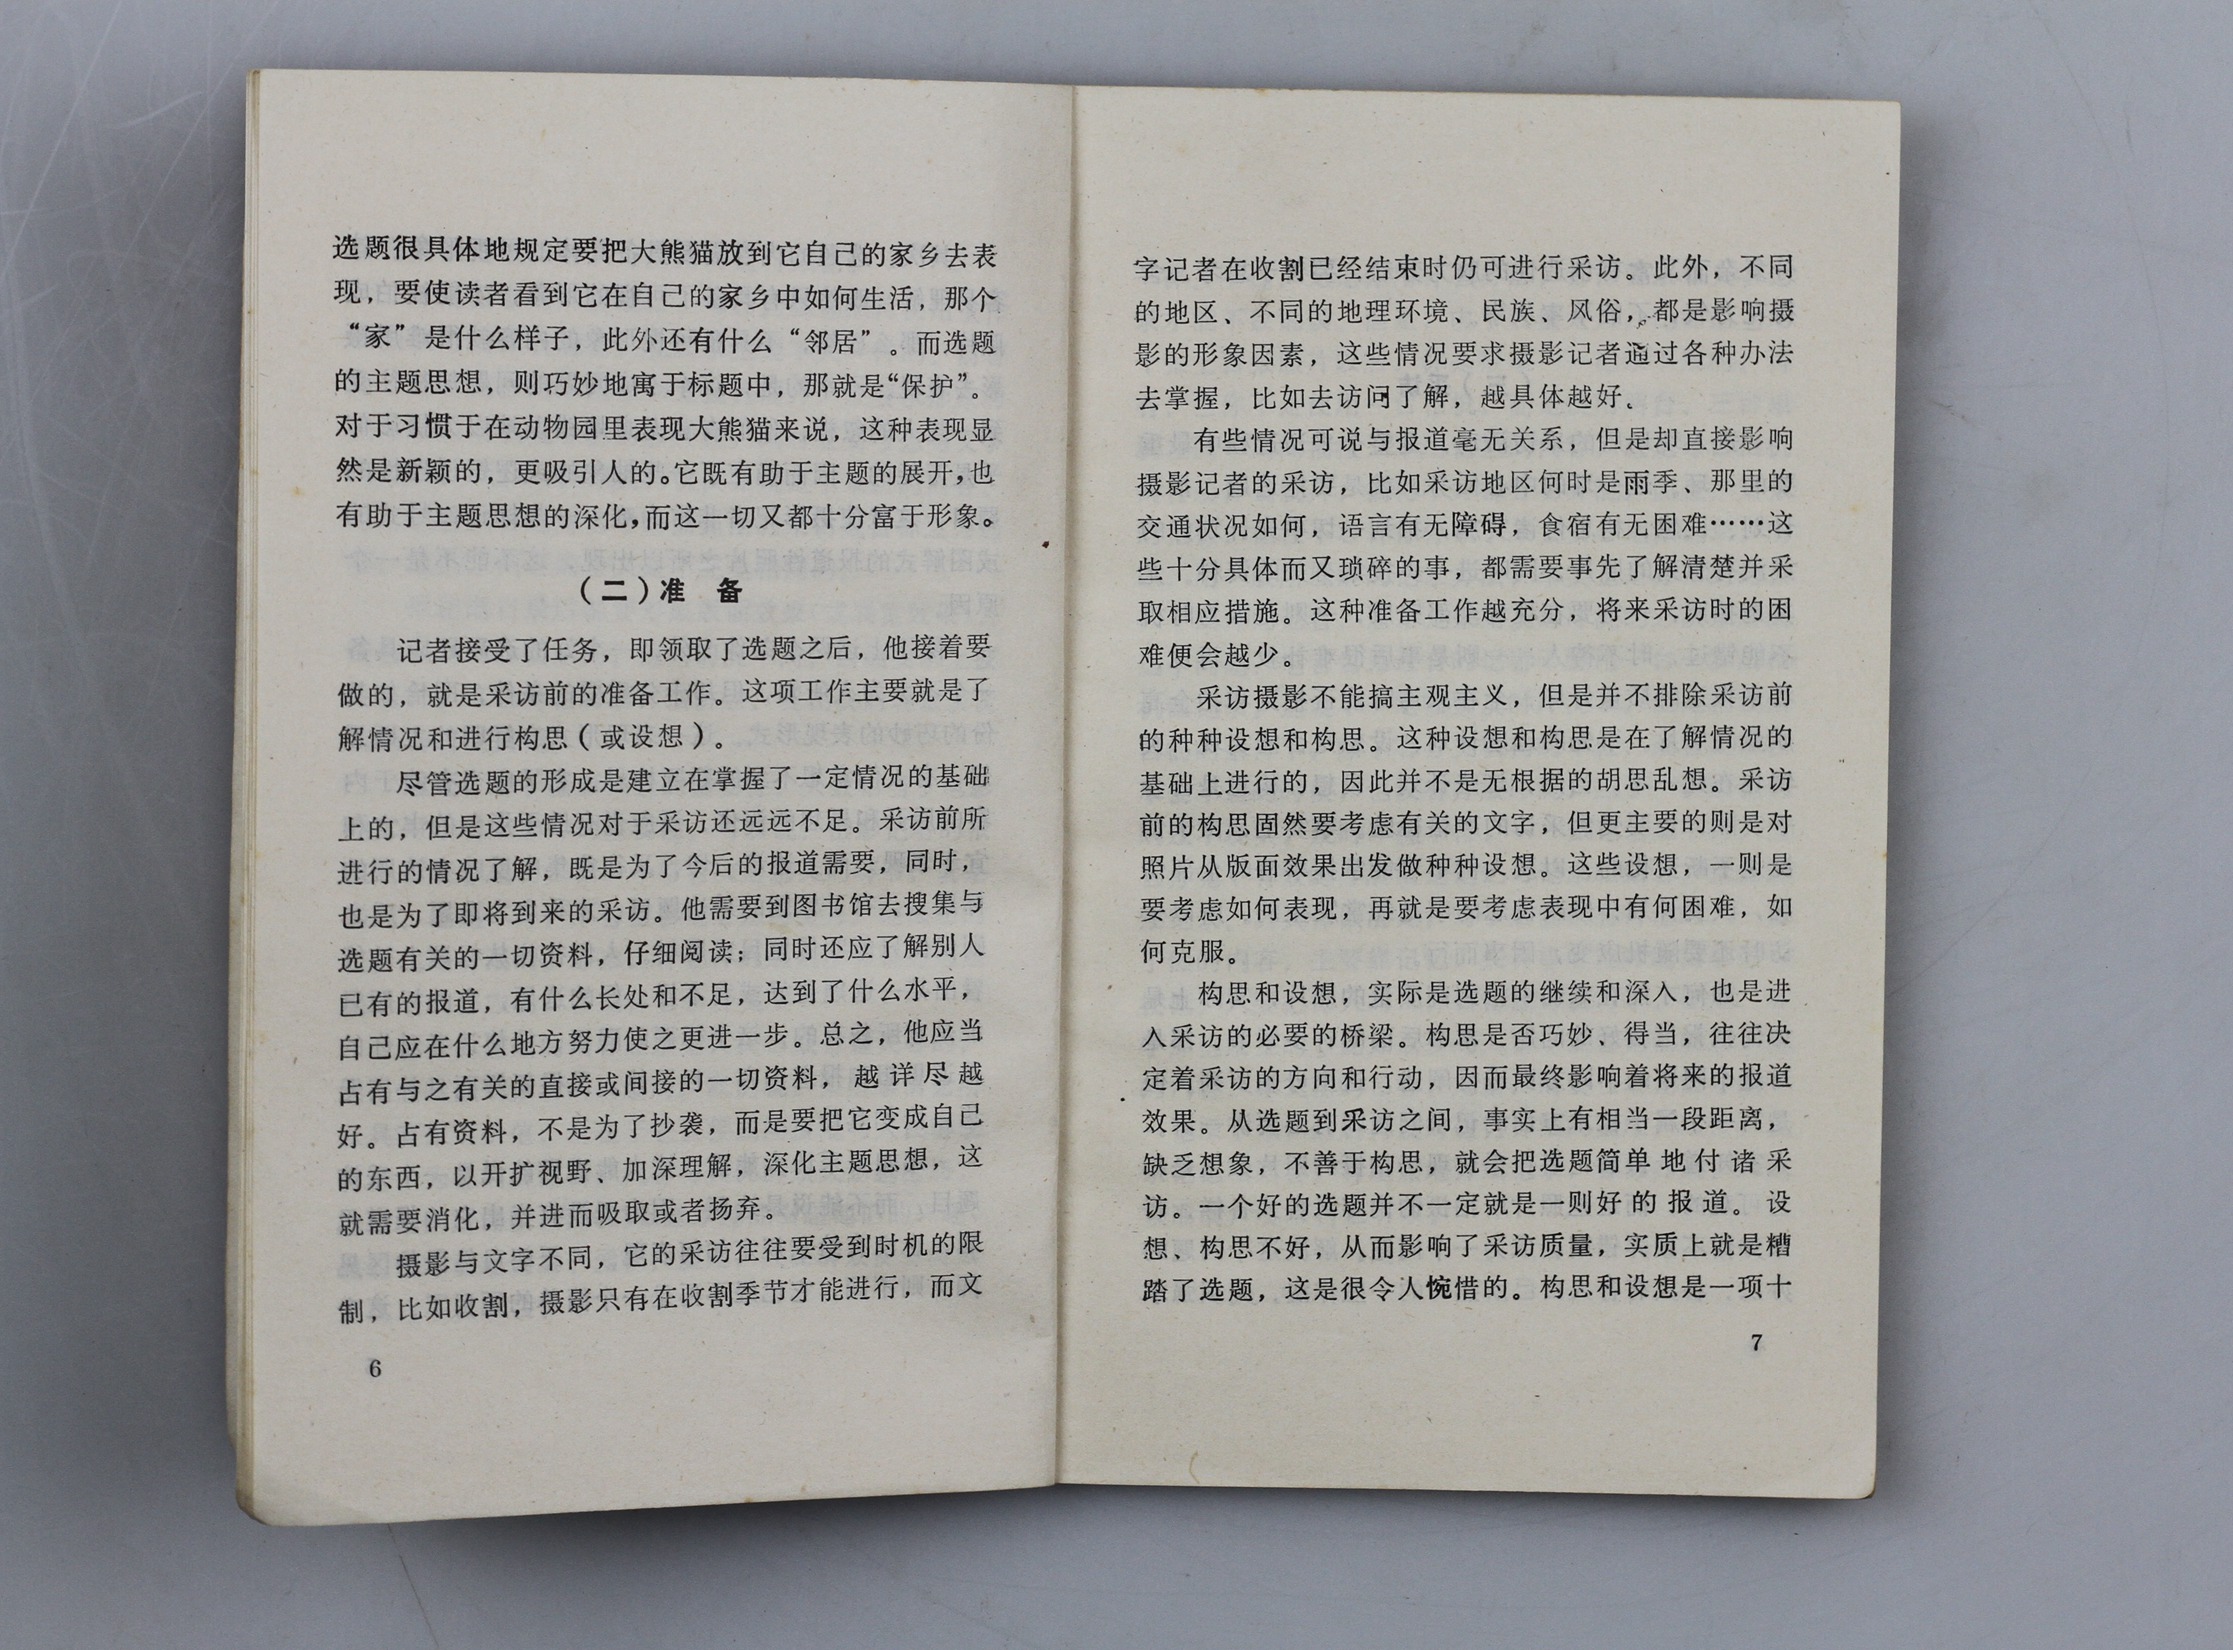 选题很具体地规定要把大熊猫放到它自己的家乡去表
现，要使读者看到它在自己的家乡中如何生活，那个
“家”是什么样子，此外还有什么“邻居”。而选题
的主题思想，则巧妙地寓于标题中，那就是“保护”。
对于习惯于在动物园里表现大熊猫来说，这种表现显
然是新颖的，更吸引人的。它既有助于主题的展开，也
有助于主题思想的深化，而这一切又都十分富于形象。
（二）准 备
记者接受了任务，即领取了选题之后，他接着要
做的，就是采访前的准备工作。这项工作主要就是了
解情况和进行构思（或设想）。
尽管选题的形成是建立在掌握了一定情况的基础
上的，但是这些情况对于采访还远远不足。采访前所
进行的情况了解，既是为了今后的报道需要，同时，
也是为了即将到来的采访。他需要到图书馆去搜集与
选题有关的一切资料，仔细阅读；同时还应了解别人
已有的报道，有什么长处和不足，达到了什么水平，
自己应在什么地方努力使之更进一步。总之，他应当
占有与之有关的直接或间接的一切资料，越详尽越
好。占有资料，不是为了抄袭，而是要把它变成自己
的东西，以开扩视野、加深理解，深化主题思想，这
就需要消化，并进而吸取或者扬弃。
摄影与文字不同，它的采访往往要受到时机的限
制，比如收割，摄影只有在收割季节才能进行，而文
6
字记者在收割已经结束时仍可进行采访。此外，不同
的地区、不同的地理环境、民族、风俗，都是影响摄
影的形象因素，这些情况要求摄影记者通过各种办法
去掌握，比如去访问了解，越具体越好。
有些情况可说与报道毫无关系，但是却直接影响
摄影记者的采访，比如采访地区何时是雨季、那里的
交通状况如何，语言有无障碍，食宿有无困难……这
些十分具体而又琐碎的事，都需要事先了解清楚并采
取相应措施。这种准备工作越充分，将来采访时的困
难便会越少。
采访摄影不能搞主观主义，但是并不排除采访前
的种种设想和构思。这种设想和构思是在了解情况的
基础上进行的，因此并不是无根据的胡思乱想。采访
前的构思固然要考虑有关的文字，但更主要的则是对
照片从版面效果出发做种种设想。这些设想，一则是
要考虑如何表现，再就是要考虑表现中有何困难，如
何克服。
构思和设想，实际是选题的继续和深入，也是进
入采访的必要的桥梁。构思是否巧妙、得当，往往决
定着采访的方向和行动，因而最终影响着将来的报道
效果。从选题到采访之间，事实上有相当一段距离，
缺乏想象，不善于构思，就会把选题简单地付诸采
访。一个好的选题并不一定就是一则好的报道。设
想、构思不好，从而影响了采访质量，实质上就是糟
踏了选题，这是很令人惋借的。构思和设想是一项十
7